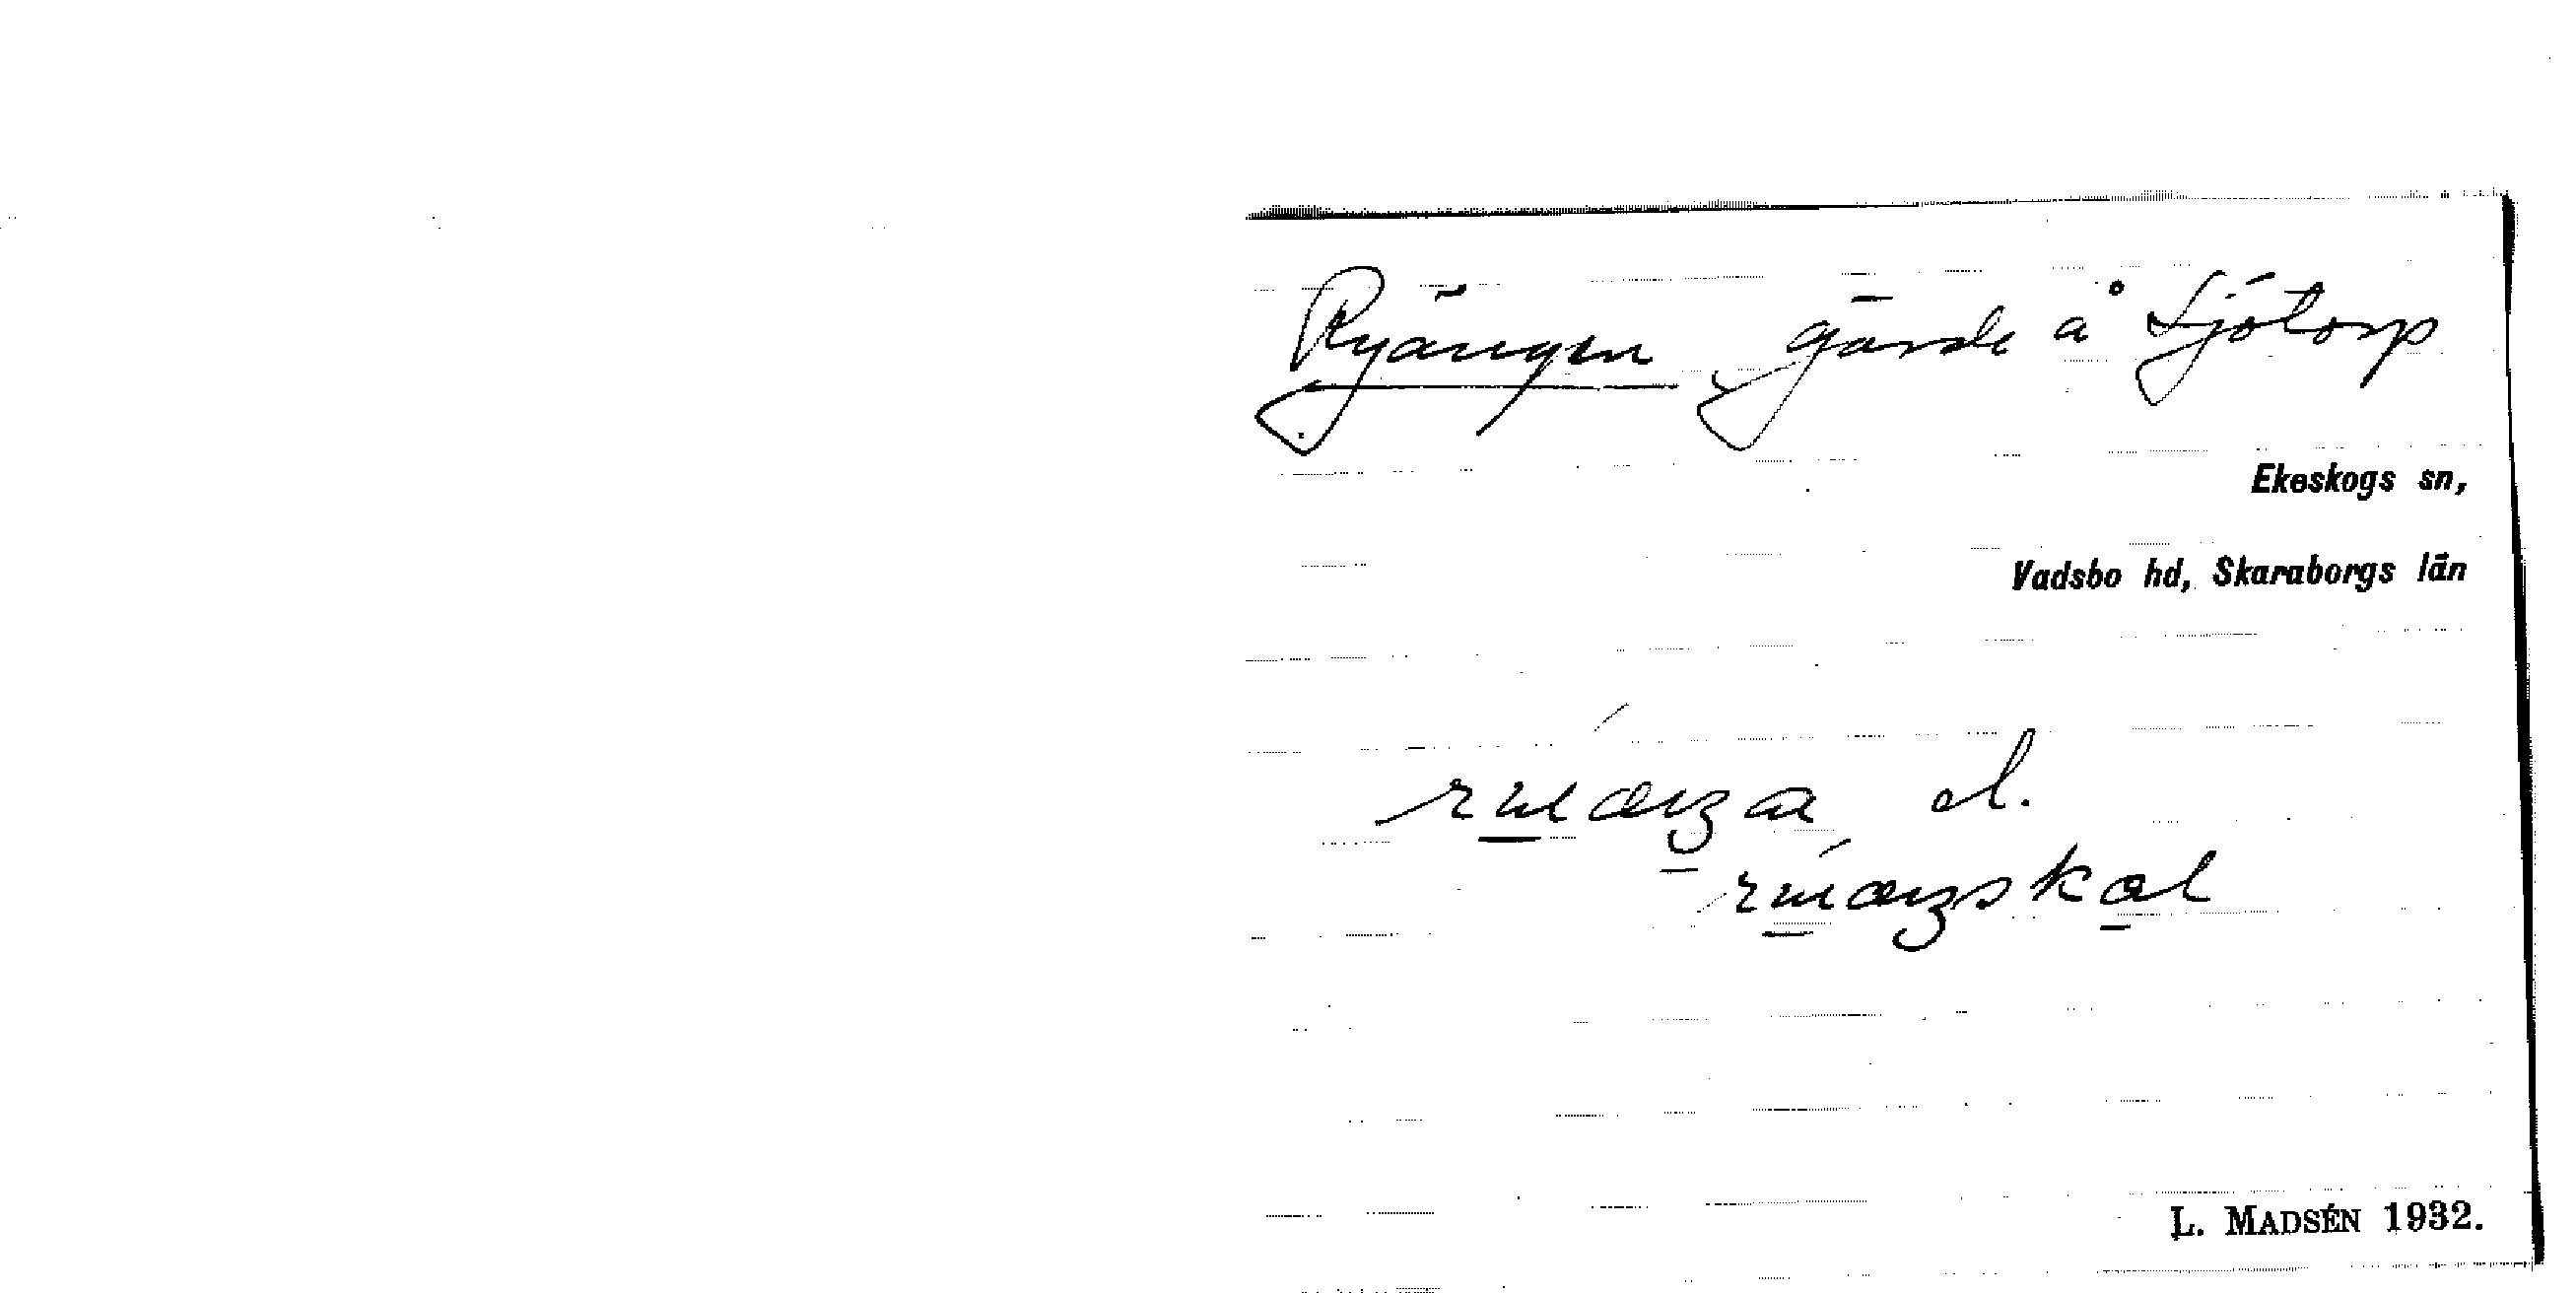 Ryängen gärde å Sjötorp
Ekeskogs sn,
Vadsbo hd, Skaraborgs län
el.
L. MADSÉN 1932.